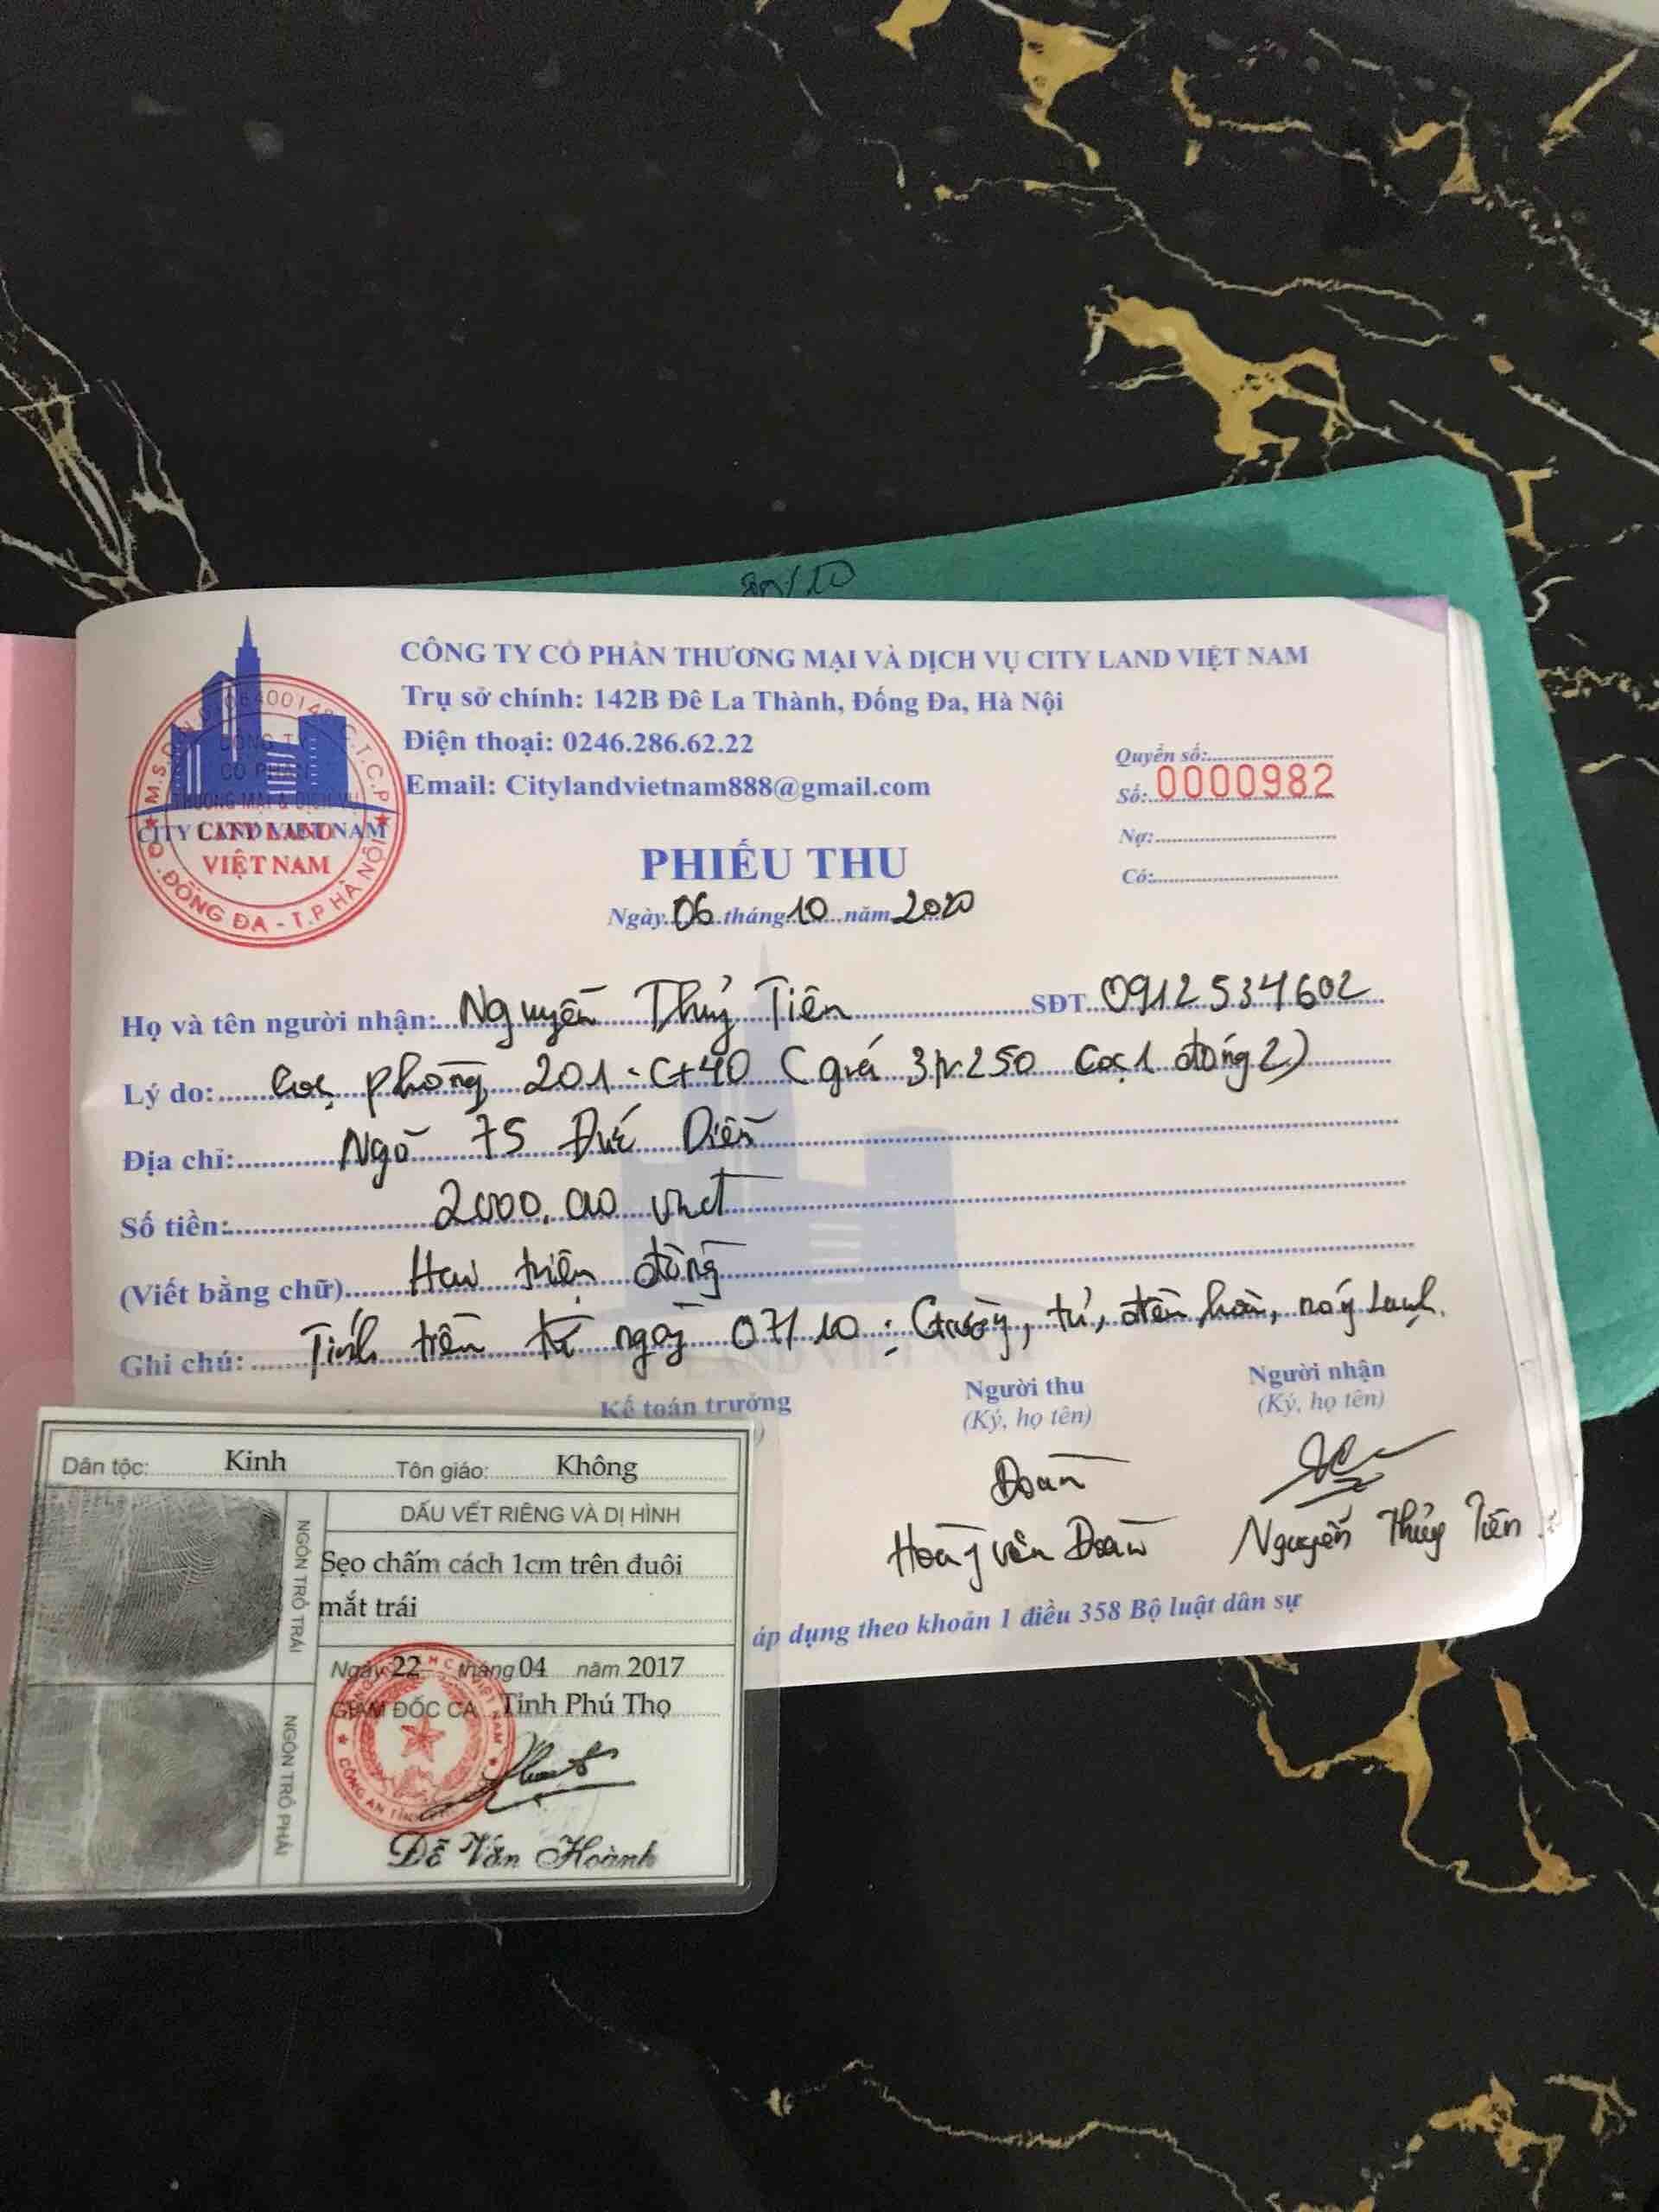 CÔNG TY CỔ PHẦN THƯƠNG MẠI VÀ DỊCH VỤ CITY LAND VIỆT NAM
Trụ sở chính: 142B Đê La Thành, Đống Đa, Hà Nội
Điện thoại: 0246.286.62.22
Email: Citylandvietnam888@gmail.com
CITY LAND VIỆT NAM
CITY LAND
VIỆT NAM
Q.ĐỐNG ĐA - T.P HÀ NỘI
Quyển số:
Số: 0000982
Nợ:
Có:
PHIẾU THU
Ngày 06 tháng 10 năm 2020
Họ và tên người nhận: Nguyễn Thuỷ Tiên SĐT 0912534602
Lý do: Cọc phòng 201 - C+40 ( giá 3tr250 cọc 1 đóng 2)
Địa chỉ: Ngõ 75 Đức Diễn
Số tiền: 2000.000 vnđ
(Viết bằng chữ) Hai triệu đồng
Ghi chú: Tính tiền từ ngày 07/10 : Giường, tủ, điều hoà, nóng lạnh.
Kế toán trưởng
Người thu
(Ký, họ tên)
Người nhận
(Ký, họ tên)
Đoàn
Hoàng Văn Đoàn
Nguyễn Thủy Tiên
áp dụng theo khoản 1 điều 358 Bộ luật dân sự
Dân tộc: Kinh Tôn giáo: Không
DẤU VẾT RIÊNG VÀ DỊ HÌNH
NGÓN TRỎ TRÁI
Sẹo chấm cách 1cm trên đuôi
mắt trái
Ngày 22 tháng 04 năm 2017
GIÁM ĐỐC CA Tỉnh Phú Thọ
NGÓN TRỎ PHẢI
Đỗ Văn Hoành